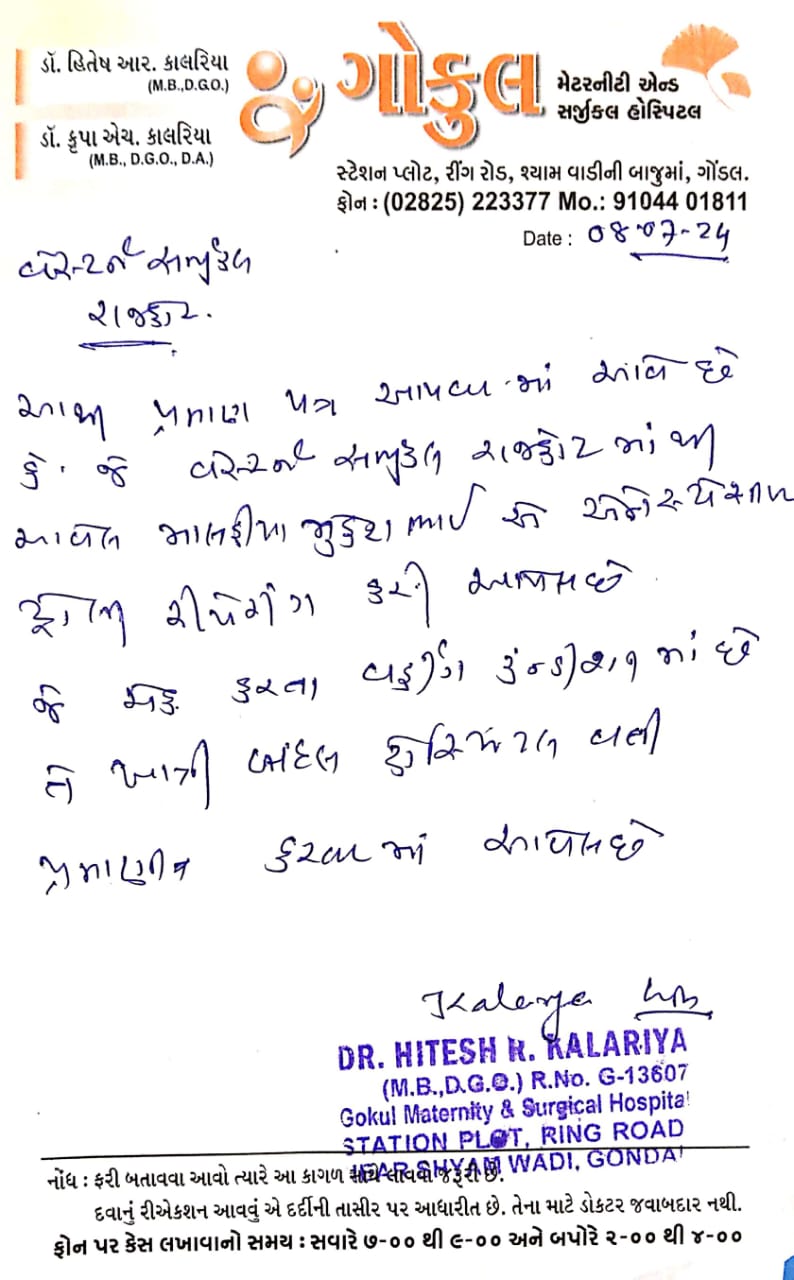 ડૉ. હિતેષ આર. કાલરિયા
(M.B.,D.G.O.)
ડૉ. કૃપા એચ. કાલરિયા
(M.B., D.G.O., D.A.)
ગોકુલ
મેટરનીટી એન્ડ
સર્જીકલ હોસ્પિટલ
સ્ટેશન પ્લોટ, રીંગ રોડ, શ્યામ વાડીની બાજુમાં, ગોંડલ.
ફોન : (02825) 223377 Mo.: 91044 01811
Date : 08-07-24
વેસ્ટર્ન સર્જીકલ
રાજકોટ.
આથી પ્રમાણ પત્ર આપવામાં આવે છે
કે. જે વેસ્ટર્ન સર્જીકલ રાજકોટ માંથી
આવેલ મુકેશભાઈ એ એનેસ્થેસ્યા
ટ્રોલી રીપેરીંગ કરી આપેલ છે
જે ચેક કરતા વર્કીંગ કંન્ડીશન માં છે
તે ખાત્રી બદલ હોસ્પિટલ વતી
પ્રમાણીત કરવામાં આવેલ છે
Kalariya
DR. HITESH R. KALARIYA
(M.B.,D.G.O.) R.No. G-13607
Gokul Maternity & Surgical Hospital
STATION PLOT, RING ROAD
NEAR SHYAM WADI, GONDAL
નોંધ : ફરી બતાવવા આવો ત્યારે આ કાગળ સાથે લાવવો જરૂરી છે.
દવાનું રીએકશન આવવું એ દર્દીની તાસીર પર આધારીત છે. તેના માટે ડોકટર જવાબદાર નથી.
ફોન પર કેસ લખાવાનો સમય : સવારે ૭-૦૦ થી ૯-૦૦ અને બપોરે ૨-૦૦ થી ૪-૦૦